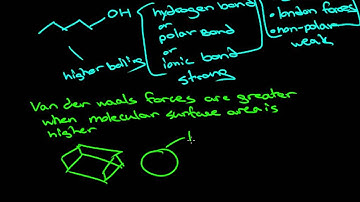 OH
hydrogen bond
or
polar bond
or
ionic bond
strong
• london forces
• non-polar
weak
higher boil
Van der waals forces are greater
when molecular surface area is
higher